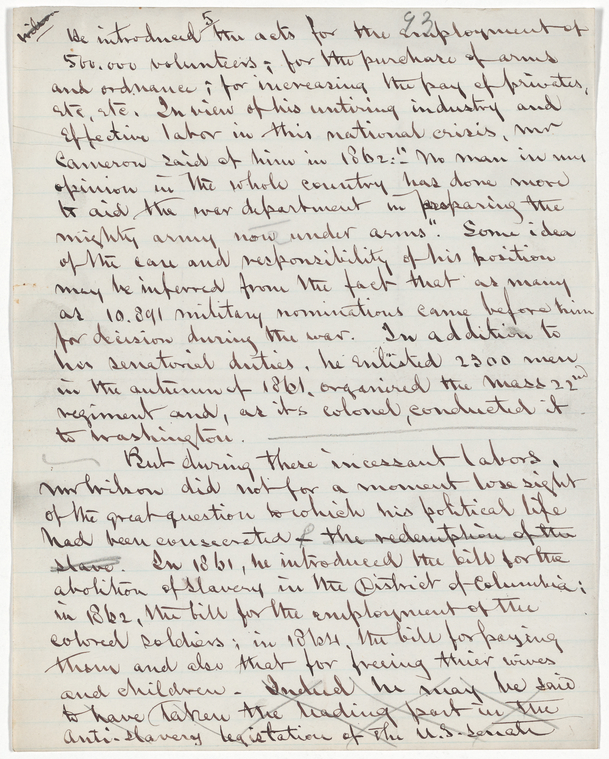 Wilson
5
93
He introduced the acts for the Employment of
500.000 volunteers; for the purchase of arms
and ordnance; for increasing the pay of privates,
etc, etc. In view of his untiring industry and
Effective labor in this national crisis, Mr
Cameron said of him in 1862:- "No man in my
opinion in the whole country has done more
to aid the war department in preparing the
mighty army now under arms". Some idea
of the care and responsibility of his position
may be inferred from the fact that as many
as 10.891 military nominations came before him
for decision during the war. In addition to
his senatorial duties, he enlisted 2300 men
in the autumn of 1861, organized the Mass 22nd
regiment and, as its colonel, conducted it
to Washington.
But during these incessant labors,
Mr Wilson did not for a moment lose sight
of the great question to which his political life
had been consecrated & the redemption of the
slave. In 1861, he introduced the bill for the
abolition of slavery in the District of Columbia;
in 1862, the bill for the employment of the
colored soldiers; in 1864, the bill for paying
them and also that for freeing thier wives
and children - Indeed he may be said
to have taken the leading part in the
Anti-slavery legistation of the U.S. Senate